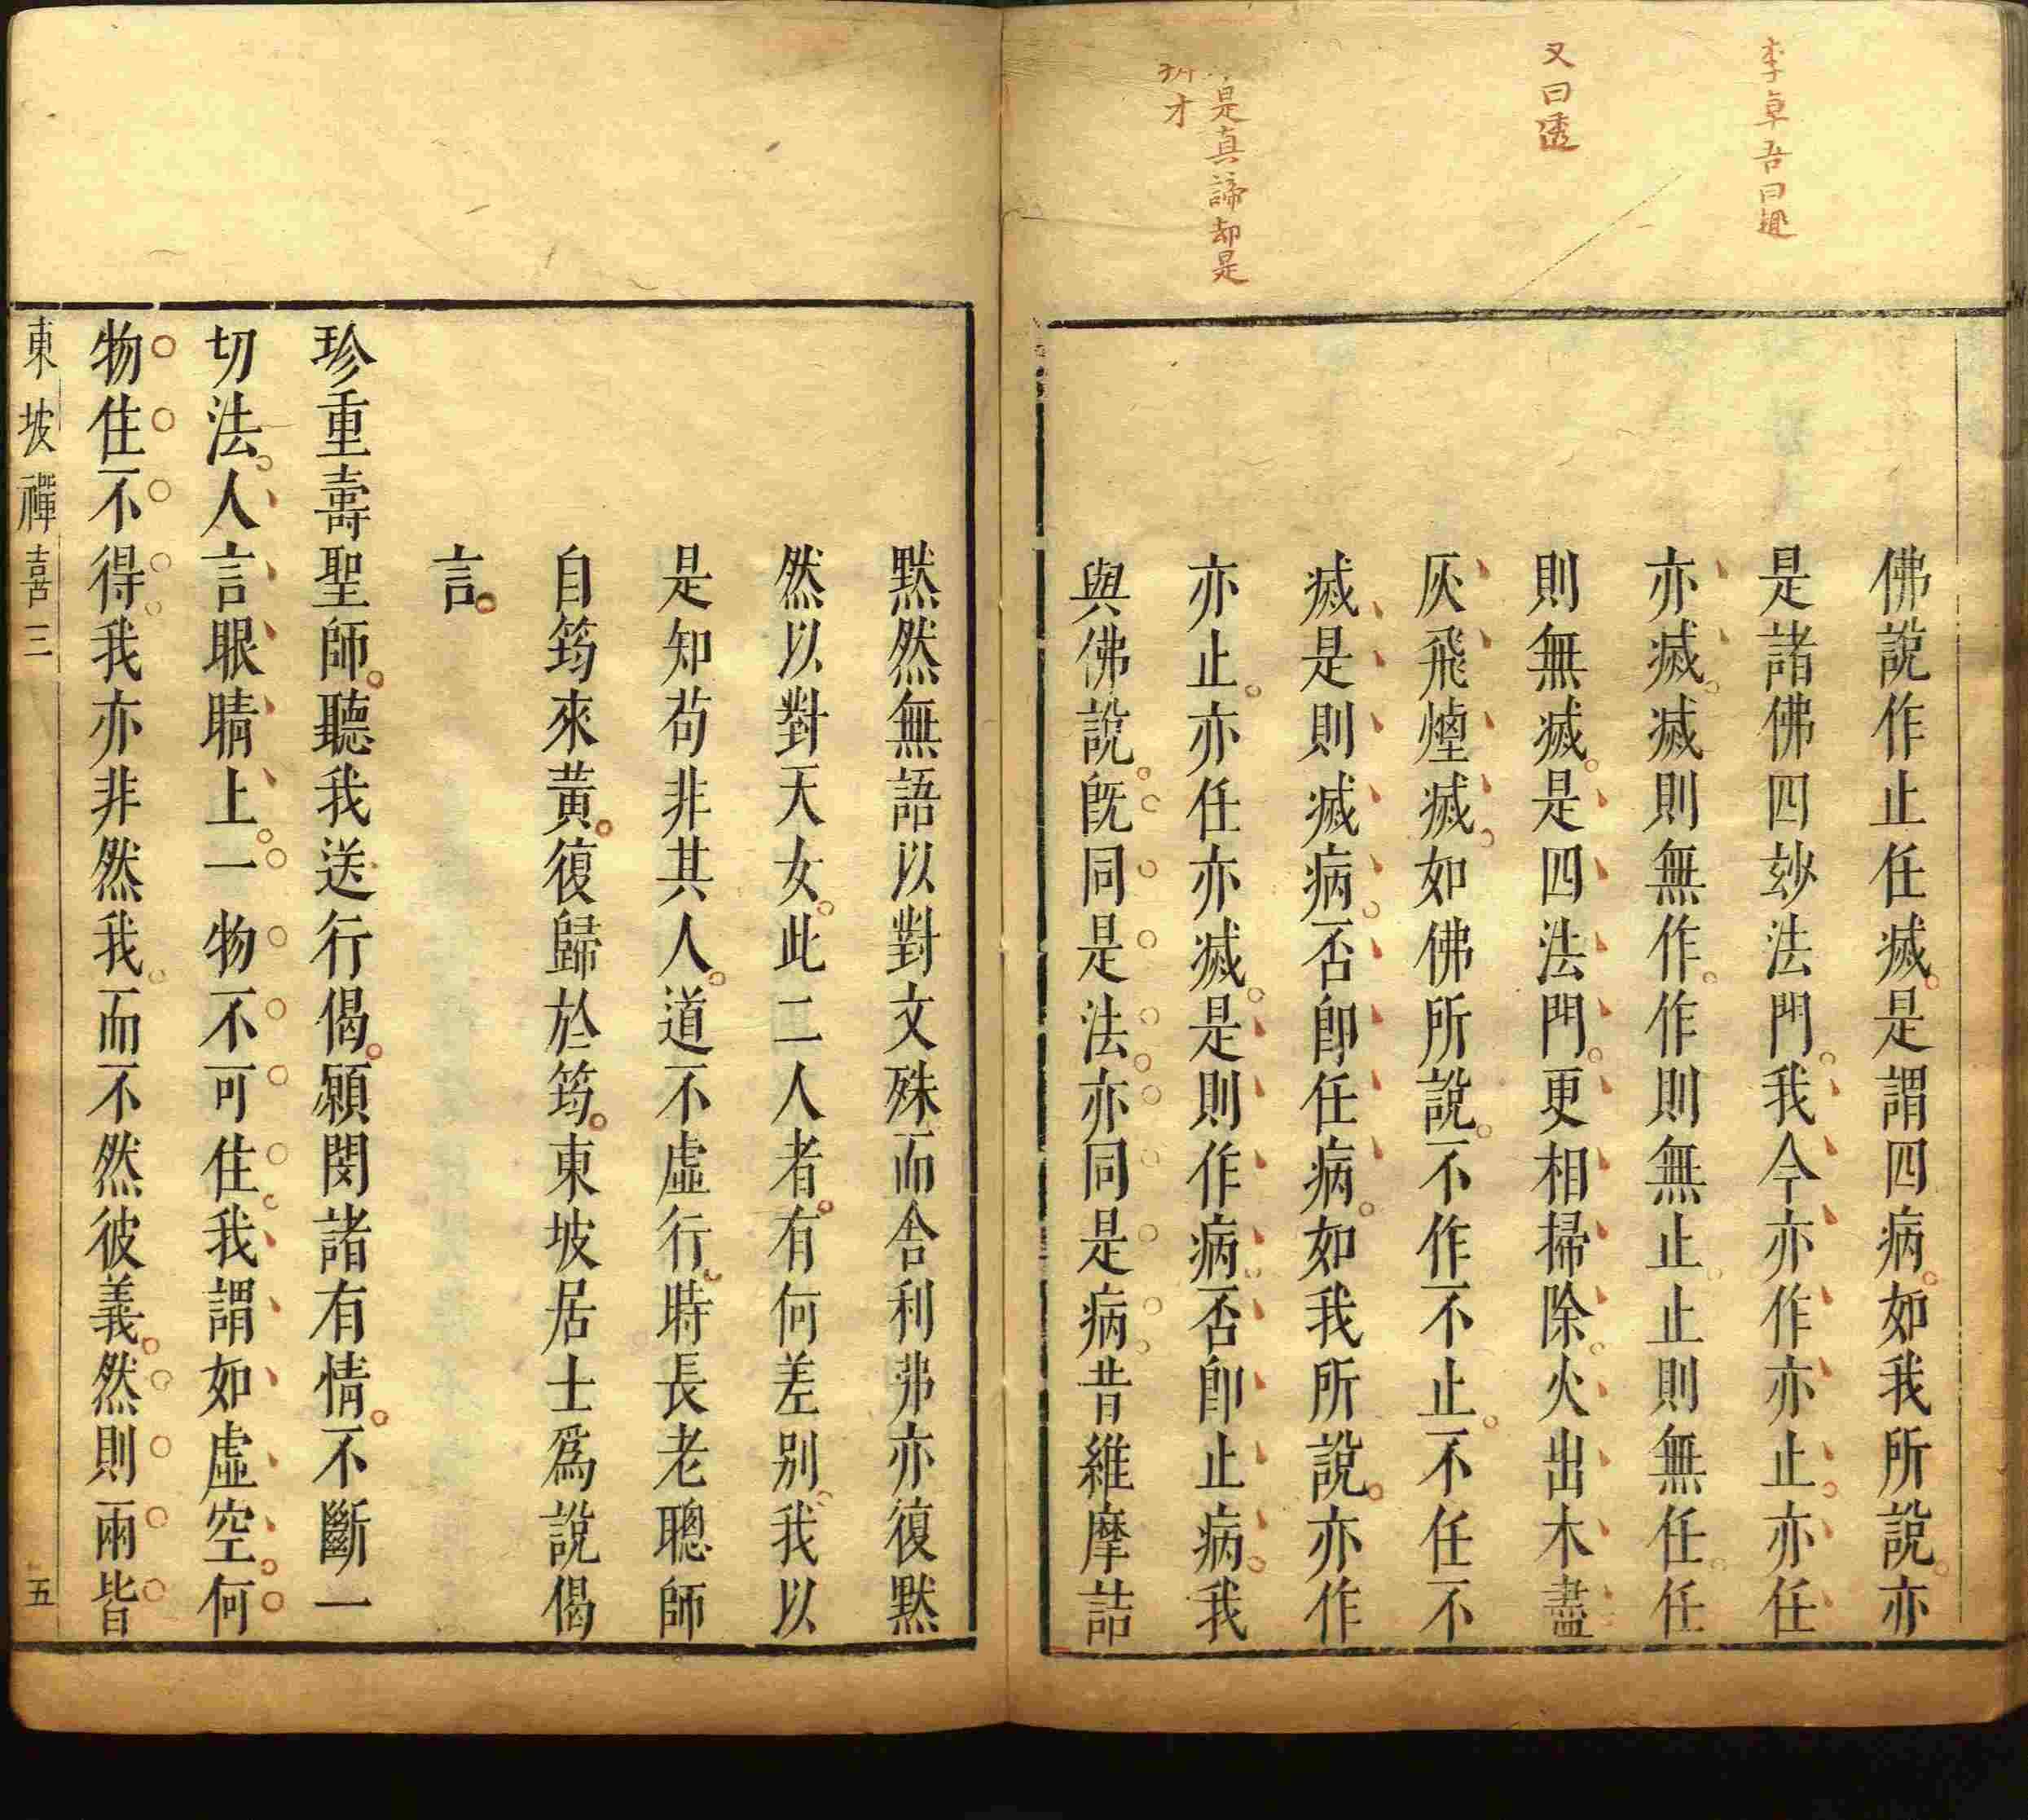 李卓吾曰趣
又曰透
是真諦却是
才
佛說作止任滅是謂四病如我所說亦
是諸佛四玅法門我今亦作亦止亦任
亦滅滅則無作作則無止止則無任任
則無滅是四法門更相掃除火出木盡
灰飛煙滅如佛所說不作不止不任不
滅是則滅病否卽任病如我所說亦作
亦止亦任亦滅是則作病否卽止病我
與佛說旣同是法亦同是病昔維摩詰
默然無語以對文殊而舍利弗亦復默
然以對天女此二人者有何差别我以
是知苟非其人道不虛行時長老聰師
自筠來黃復歸於筠東坡居士爲說偈
言
珍重壽聖師聽我送行偈願閔諸有情不斷一
切法人言眼睛上一物不可住我謂如虛空何
物住不得我亦非然我而不然彼義然則兩皆
東坡禪喜三 五